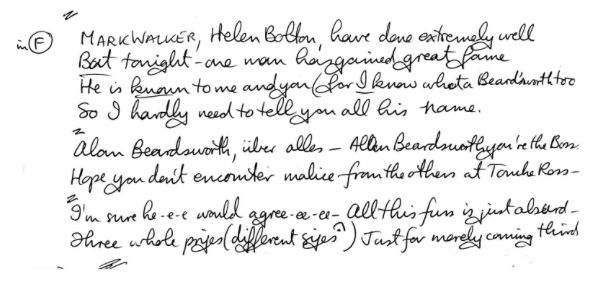 in (F) MARK WALKER, Helen Bolton, have done extremely well
But tonight - one man has gained great fame
He is known to me and you (for I know what a Beardsworth too
So I hardly need to tell you all his name.
Alan Beardsworth, über alles - Allan Beardsworth you're the Boss.
Hope you don't encounter malice from the others at Touche Ross -
I'm sure he-e-e would agree-ee-ee- All this fun is just absurd -
Three whole prizes (different sizes) Just for merely coming third